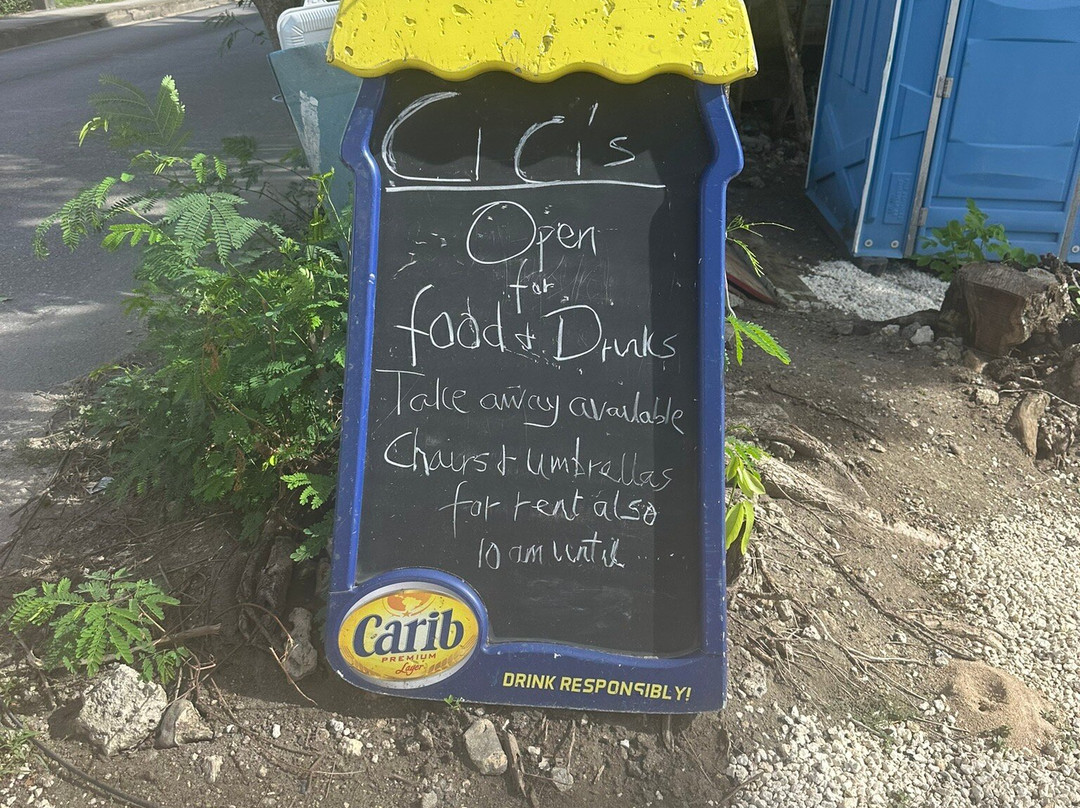 CiCi's
Open
for
food & Drinks
Take away available
Chairs & umbrellas
for rent also
10 am until
Carib
PREMIUM
Lager
DRINK RESPONSIBLY!